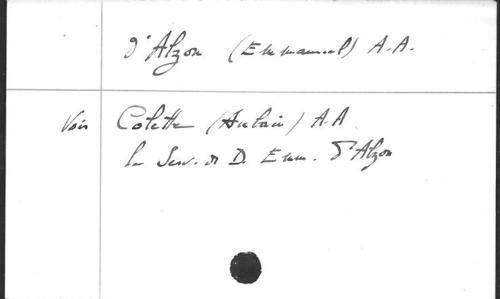 d'Alzon (Emmanuel) A.A.
Voir Colette (Aubain) A.A
Le Serv. de D. Emm. d'Alzon